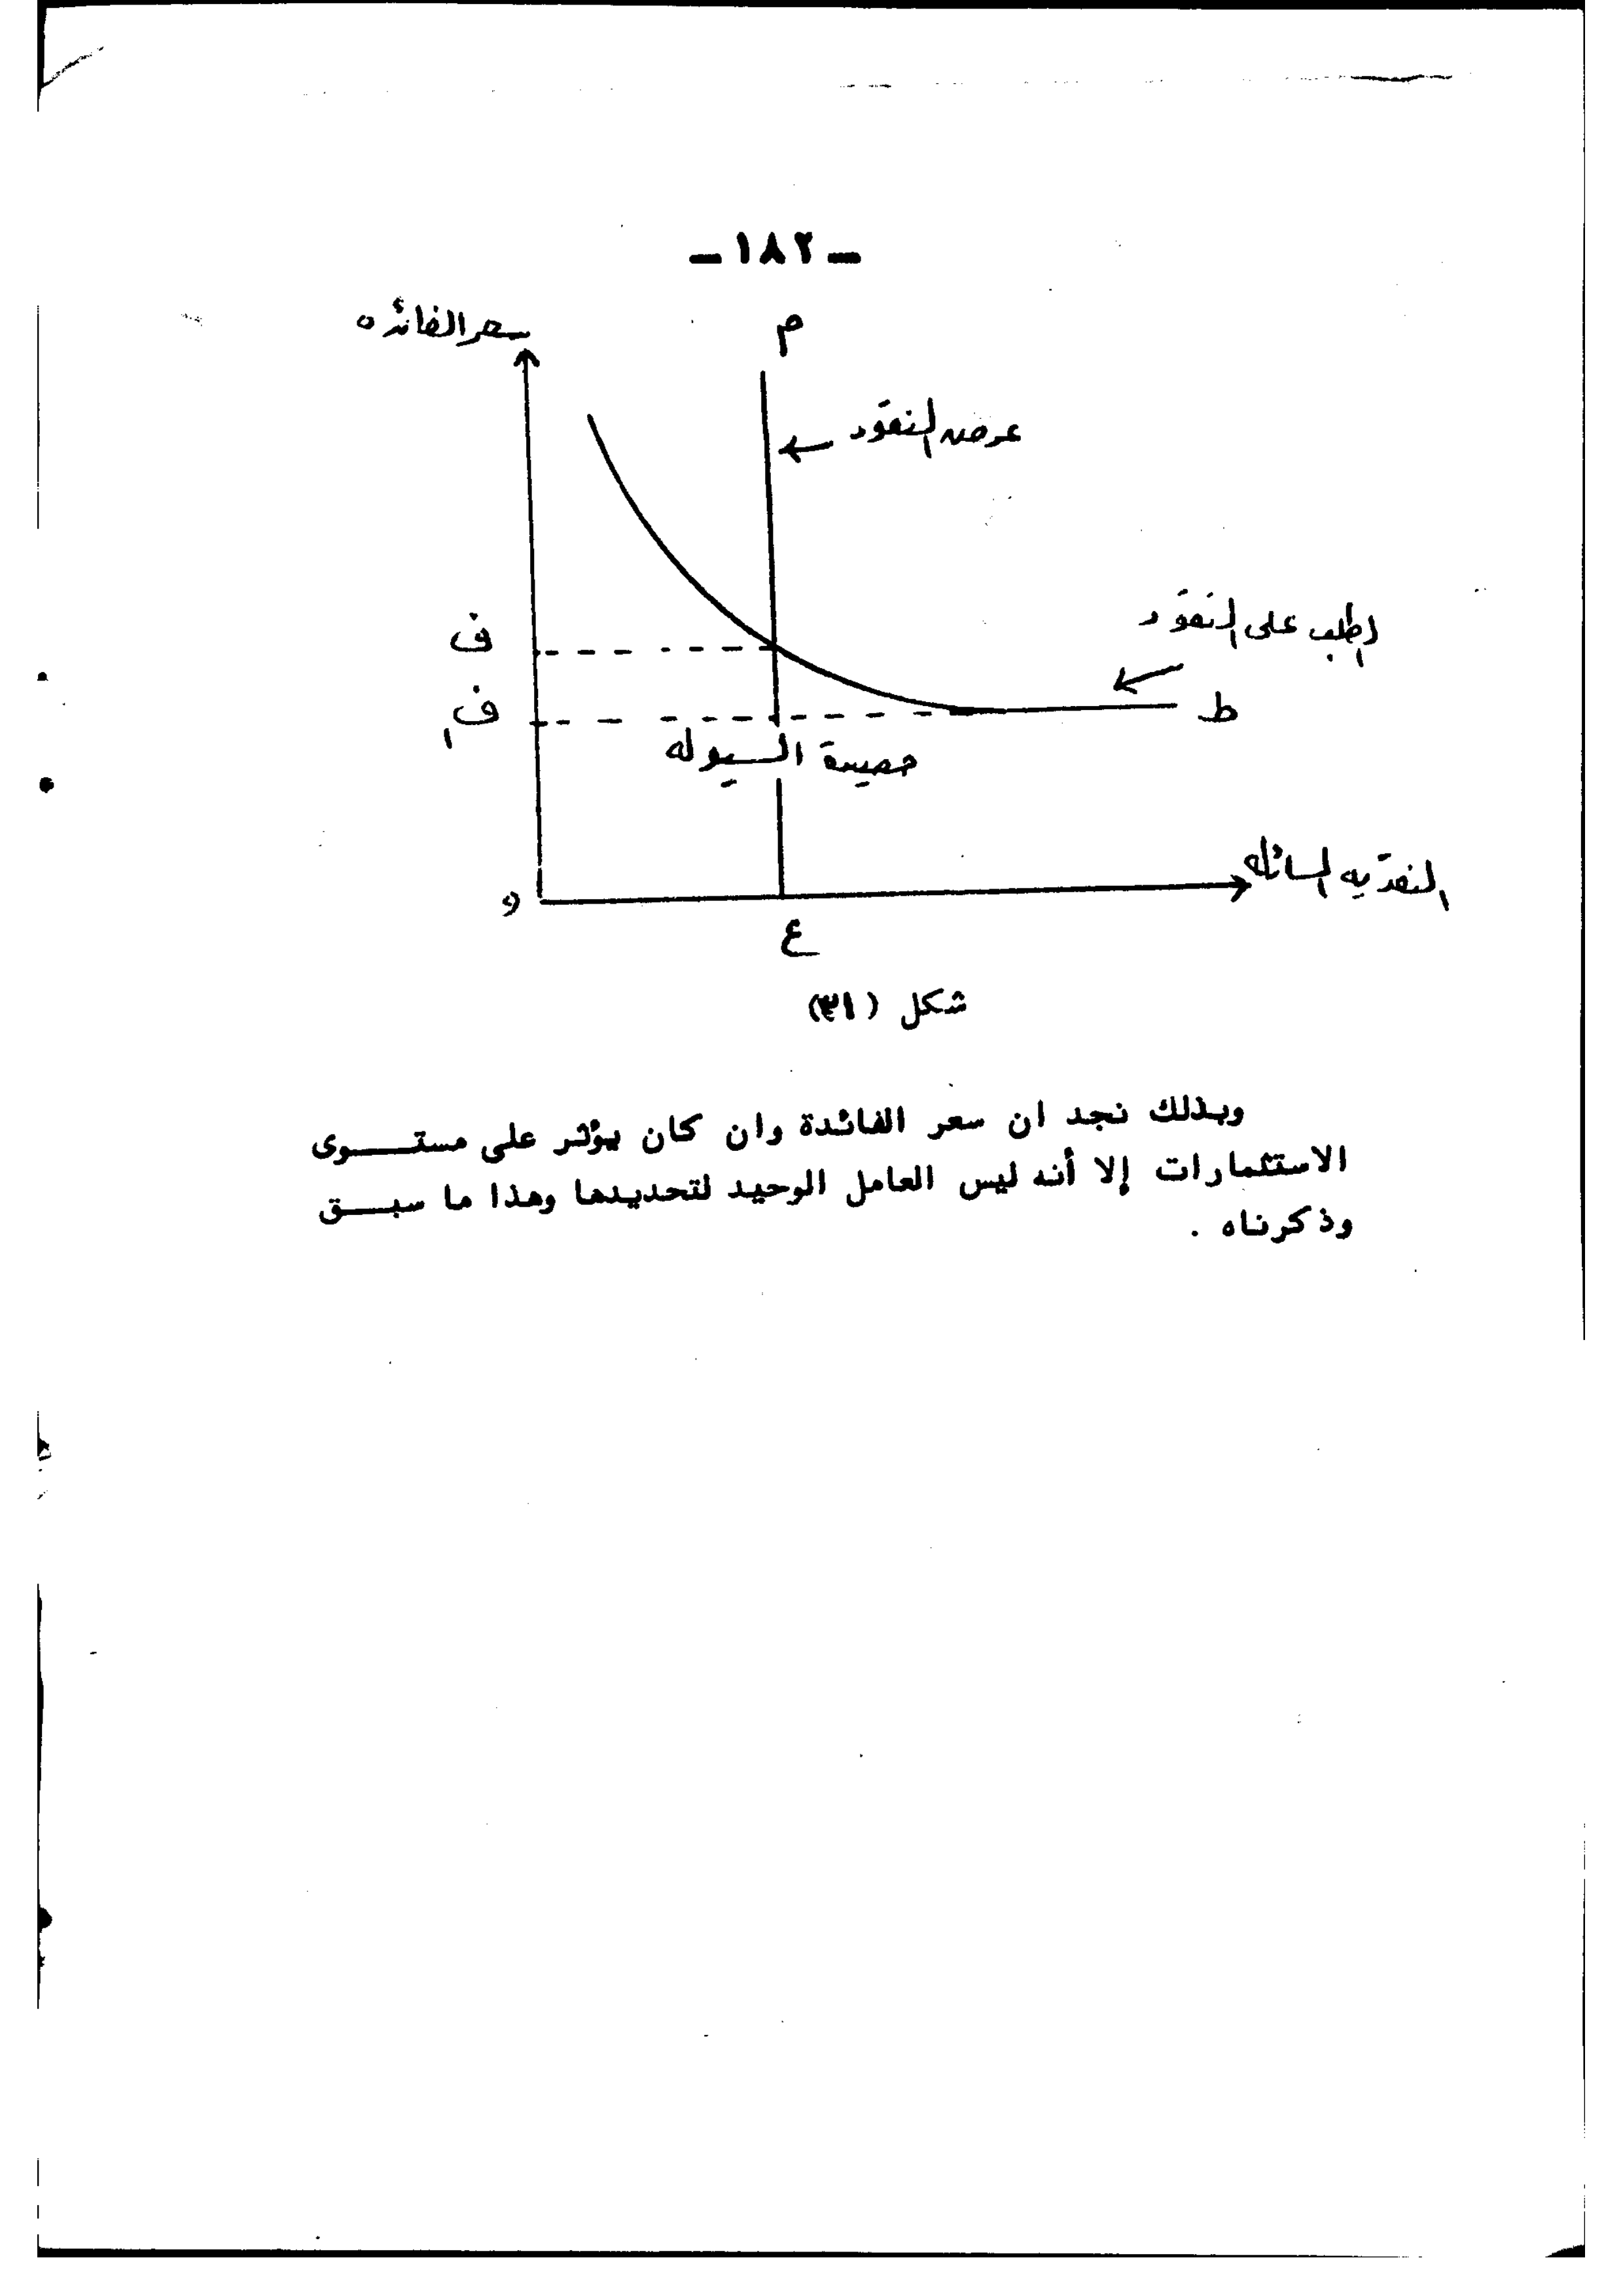 ـ ١٨٢ ـ
سعر الفائده
م
عرض النقود
الطلب على النقود
ف
ف١
ط
مصيدة السيوله
النقديه السائله
و
ع
شكل (٣١)
وبذلك نجد ان سعر الفائدة وان كان يؤثر على مستـــوى
الاستثمارات إلا أنه ليس العامل الوحيد لتحديدها وهذا ما سبـــق
وذكرناه .